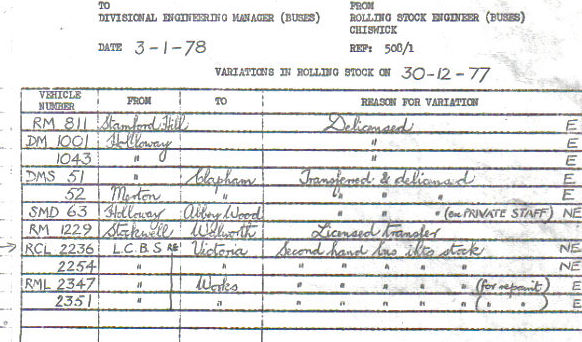 TO FROM
DIVISIONAL ENGINEERING MANAGER (BUSES) ROLLING STOCK ENGINEER (BUSES)
CHISWICK
DATE 3-1-78 REF: 508/1
VARIATIONS IN ROLLING STOCK ON 30-12-77
VEHICLE NUMBER FROM TO REASON FOR VARIATION
RM 811 Stamford Hill Delicensed E
DM 1001 Holloway " E
1043 " " E
DMS 51 " Clapham Transferred & delicensed E
52 Merton " " " " E
SMD 63 Holloway Abbey Wood " " " (ex PRIVATE STAFF) NE
RM 1229 Stockwell Walworth Licensed transfer
→ RCL 2236 L.C.B.S Victoria Second hand bus into stock NE
2254 " " " " " " " NE
RML 2347 " Works " " " " " (for repaint) E
2351 " " " " " " " ( " " ) E